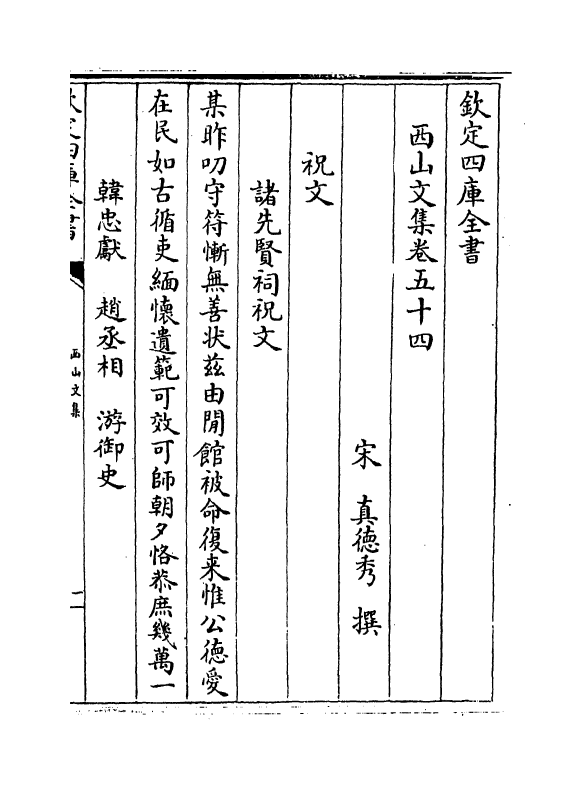 欽定四庫全書
西山文集卷五十四
宋 真德秀 撰
祝文
諸先賢祠祝文
某昨叨守符慚無善状茲由閒館被命復来惟公徳愛
在民如古循吏緬懷遺範可效可師朝夕恪恭庶幾萬一
韓忠獻 趙丞相 游御史
欽定四庫全書
西山文集